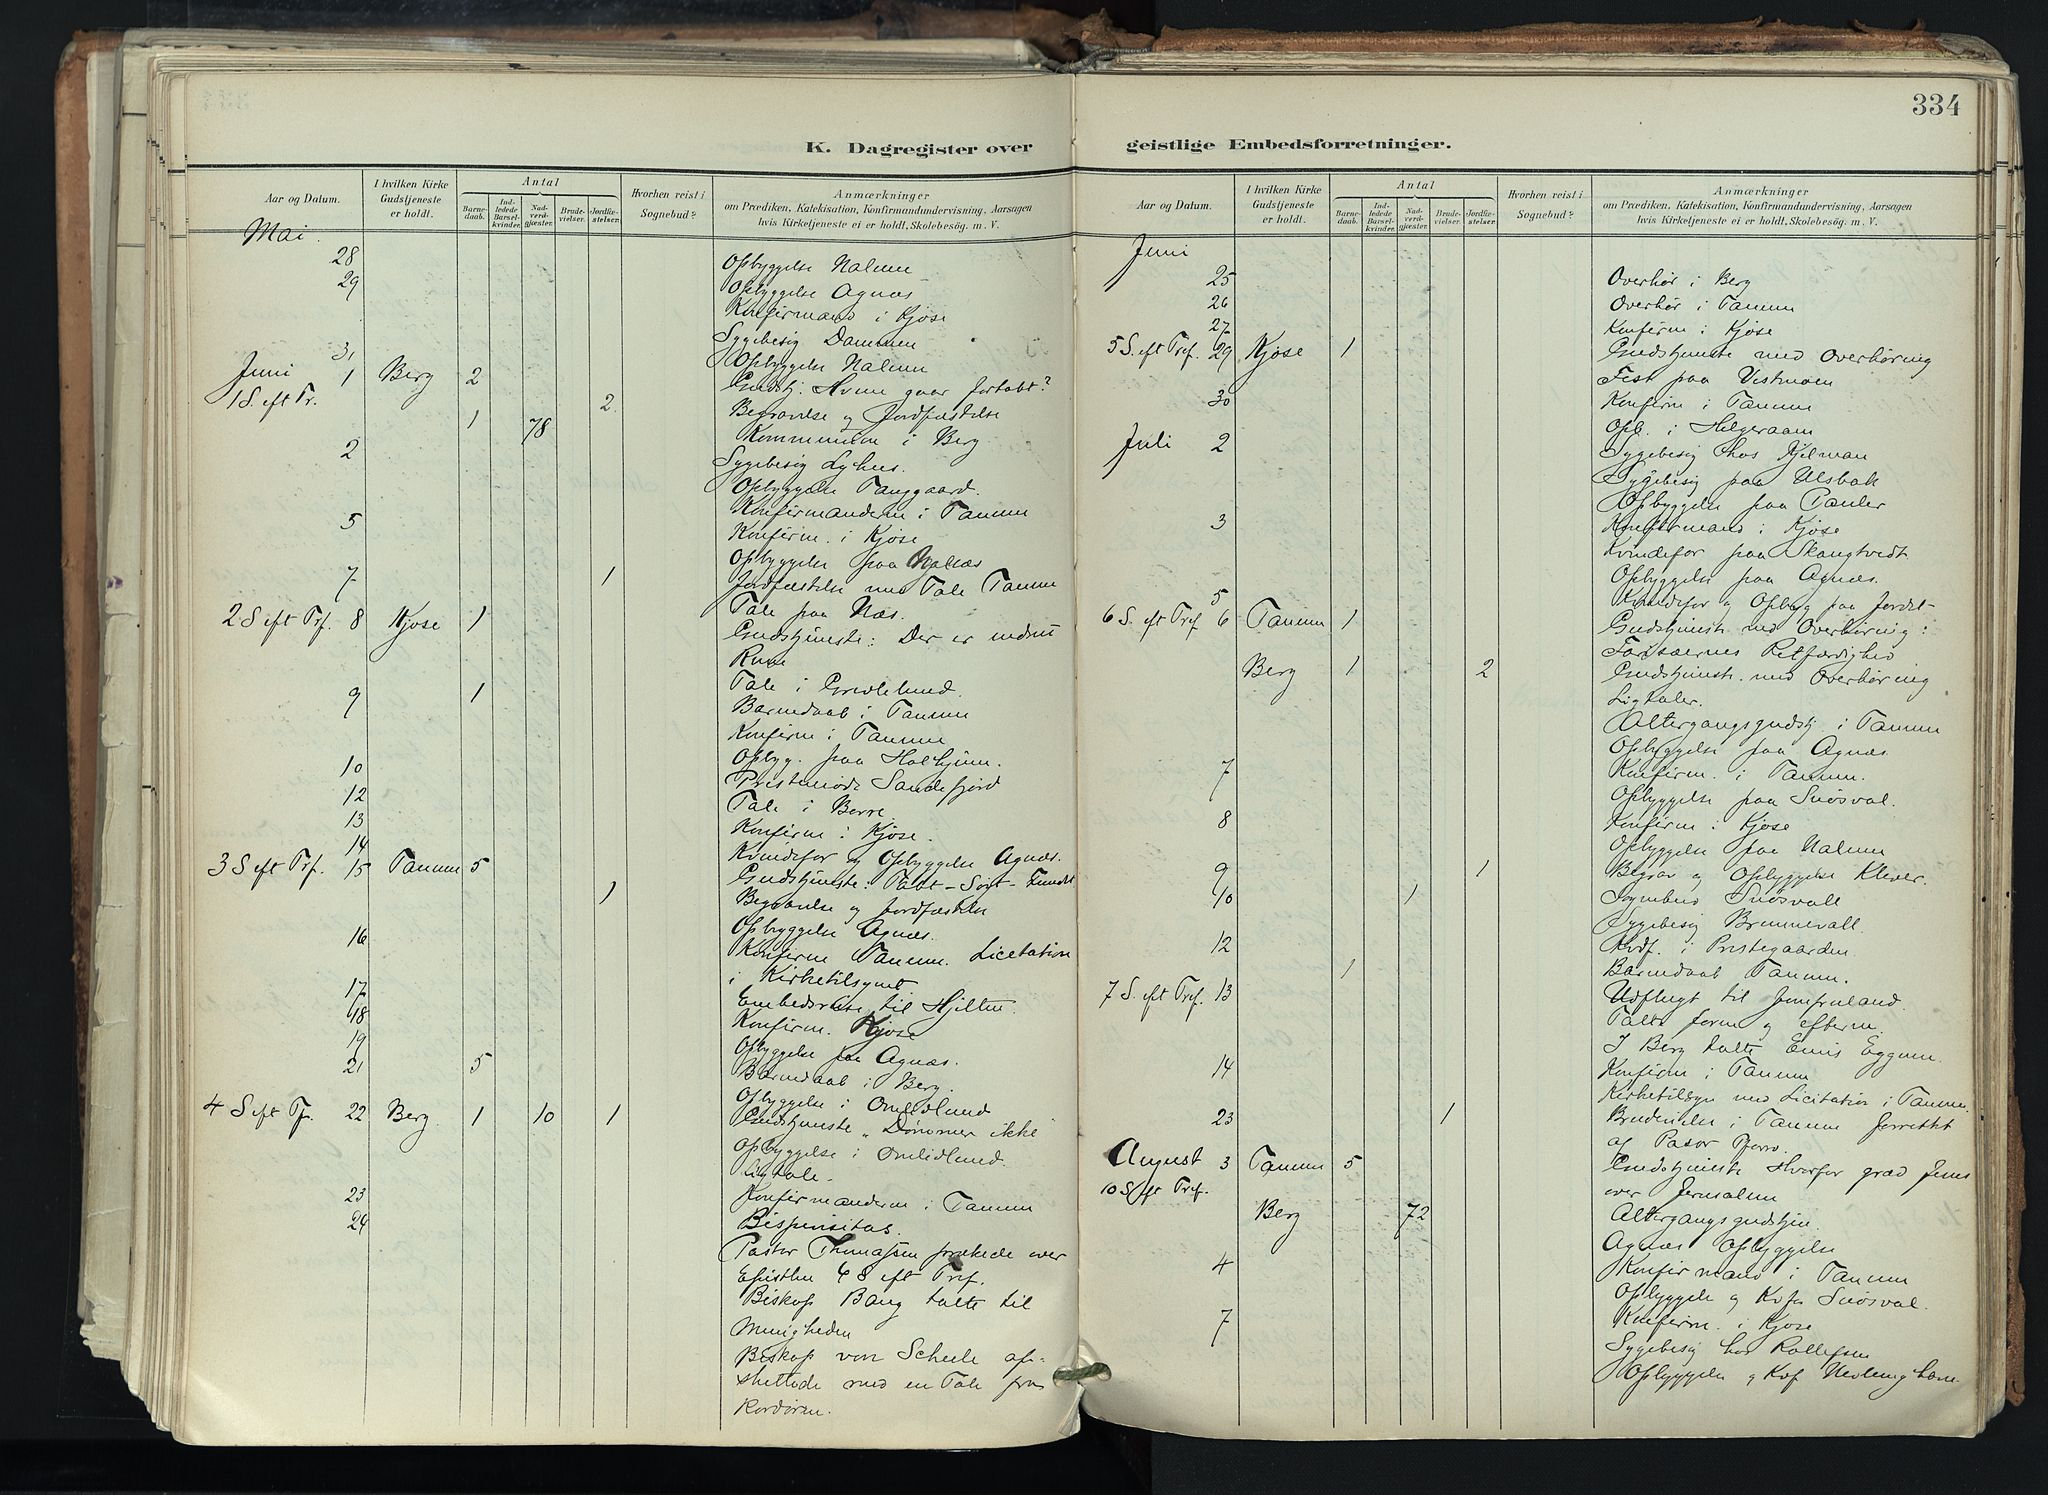 334
K. Dagregister over
geistlige Embedsforretninger.
Aar og Datum.
I hvilken Kirke Gudstjeneste er holdt.
Antal
Barnedaab.
Indledede Barselkvinder.
Nadverdgjester.
Brudevielser.
Jordfæstelser.
Hvorhen reist i Sognebud?
Anmærkninger
om Prædiken, Katekisation, Konfirmandundervisning, Aarsagen
hvis Kirketjeneste ei er holdt, Skolebesøg. m. V.
Mai.
28 Opbyggelse Nalum
29 Opbyggelse Agnæs
Konfirmand i Kjose
Sygebesøg Dammen
31 Opbyggelse Nalum
Juni 1 Berg 2 Gudstj. Hvem gaar fortabt?
1 S. eft Tr. 2 Begravelse og Jordfæstelse
1 78 Kommunion i Berg
2 Sygebesøg
Opbyggelse Tanggaard.
Konfirmanderne i Tanum
5 Konfirm. i Kjose
Opbyggelse paa
7 1 Jordfæstelse med Tale Tanum
Tale paa Næs.
2 S eft Trf. 8 Kjose 1 Gudstjeneste: Der er endnu
Rum
Tale i
9 1 Barnedaab i Tanum
Konfirm i Tanum
Opbyg. paa
10 Prestemøde Sandefjord
12 Tale i Borre
13 Konfirm i Kjose.
14 Kvindefor og Opbyggelse Agnæs.
3 S eft Trf. 15 Tanum 5 Gudstjeneste: Tabt - Søgt - Fundet
1 Begravelse og Jordfæstelse
Opbyggelse Agnæs.
16 Konfirm Tanum. Licitation
i Kirketilsynet
17 Embedsreise til
18 Konfirm. Kjose
19 Opbyggelse paa Agnæs.
21 5 Barnedaab i Berg.
Opbyggelse i Omlidlund
4 S eft Tr. 22 Berg 1 10 1 Gudstjeneste „Dømmer ikke"
Opbyggelse i Omlidlund.
Ligtale.
23 Konfirmanderne i Tanum
24 Bispevisitas.
Pastor Thomassen prækede over
Epistlen 4 S eft Tref.
Biskop Bang talte til
Menigheden
Biskop von Scheele af-
sluttede med en Tale fra
Kordøren.
Aar og Datum.
I hvilken Kirke Gudstjeneste er holdt.
Antal
Barnedaab.
Indledede Barselkvinder.
Nadverdgjester.
Brudevielser.
Jordfæstelser.
Hvorhen reist i Sognebud?
Anmærkninger
om Prædiken, Katekisation, Konfirmandundervisning, Aarsagen
hvis Kirketjeneste ei er holdt, Skolebesøg. m. V.
Juni
25 Overhør i Berg
26 Overhør i Tanum
27 Konfirm i Kjose
5 S. eft Tref. 29 Kjose 1 Gudstjeneste med Overhøring
Fest paa Vestmoen
30 Konfirm i Tanum
Opb. i Helgeraaen
Juli 2 Sygebesøg hos
Sygebesøg paa Ulsbak
Opbyggelse paa Pauler
3 Konfirmand i Kjose
Kvindefor paa Skangtvedt
Opbyggelse paa Agnæs.
5 Kvindefor og Opbyg paa Jordet
6 S. eft Tref 6 Tanum 1 Gudstjeneste med Overhøring:
Farisæernes Retfærdighed
Berg 1 2 Gudstjeneste med Overhøring
Ligtaler.
Altergangsgudstj i Tanum
Opbyggelse paa Agnæs
7 Konfirm. i Tanum.
Opbyggelse paa Snøsval.
8 Konfirm i Kjose
Opbyggelse paa Nalum
9 1 Begrav og Opbyggelse Klever.
10 1 Sognebud Snøsvall
Sygebesøg Brunnevall
12 Kvdf. i Prestegaarden
1 Barnedaab Tanum.
7 S. eft Tref. 13 Udflugt til Jomfruland.
Talte form og efterm.
I Berg talte Emis Eggum.
14 Konfirm i Tanum
Kirketilsyn med Licitation i Tanum.
23 1 Brudevielse i Tanum forrettet
af Pastor
August 3 Tanum 5 Gudstjeneste Hvorfor græd Jesus
10 S eft Tref. over Jerusalem
Berg 72 Altergangsgudstjen.
Agnæs Opbyggelse
4 Konfirmand i Tanum
Opbyggelse og Kvfor Snøsval.
7 Konfirm. i Kjose
Sygebesøg hos Rollefsen
Opbyggelse og Kvf